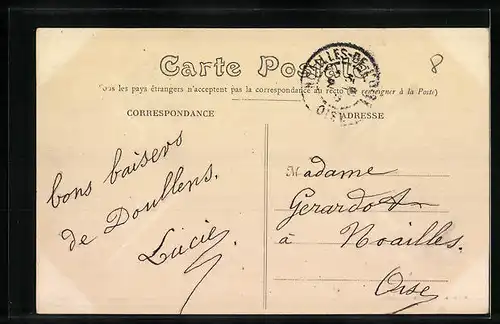 Carte Pos
Tous les pays étrangers n'acceptent pas la correspondance au recto seigner à la Poste)
CORRESPONDANCE
ADRESSE
OISE
8
bons baisers
de Doullens.
Lucie
Madame
Gerardot
à Noailles.
Oise